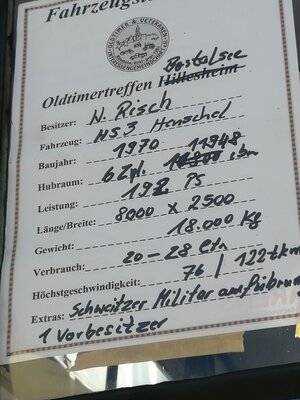 Fahrzeugst
OLDTIMER & VETERANEN
Bostalsee
Oldtimertreffen Hillesheim
Besitzer: N. Risch
Fahrzeug: HS3 Henschel
Baujahr: 1970
Hubraum: 6 Zyl. 11948 cbm
Leistung: 192 PS
Länge/Breite: 8000 x 2500
Gewicht: 18.000 Kg
Verbrauch: 20-28 Ltr.
Höchstgeschwindigkeit: 76 / 122 tkm
Extras: Schweitzer Militär ausführun
1 Vorbesitzer